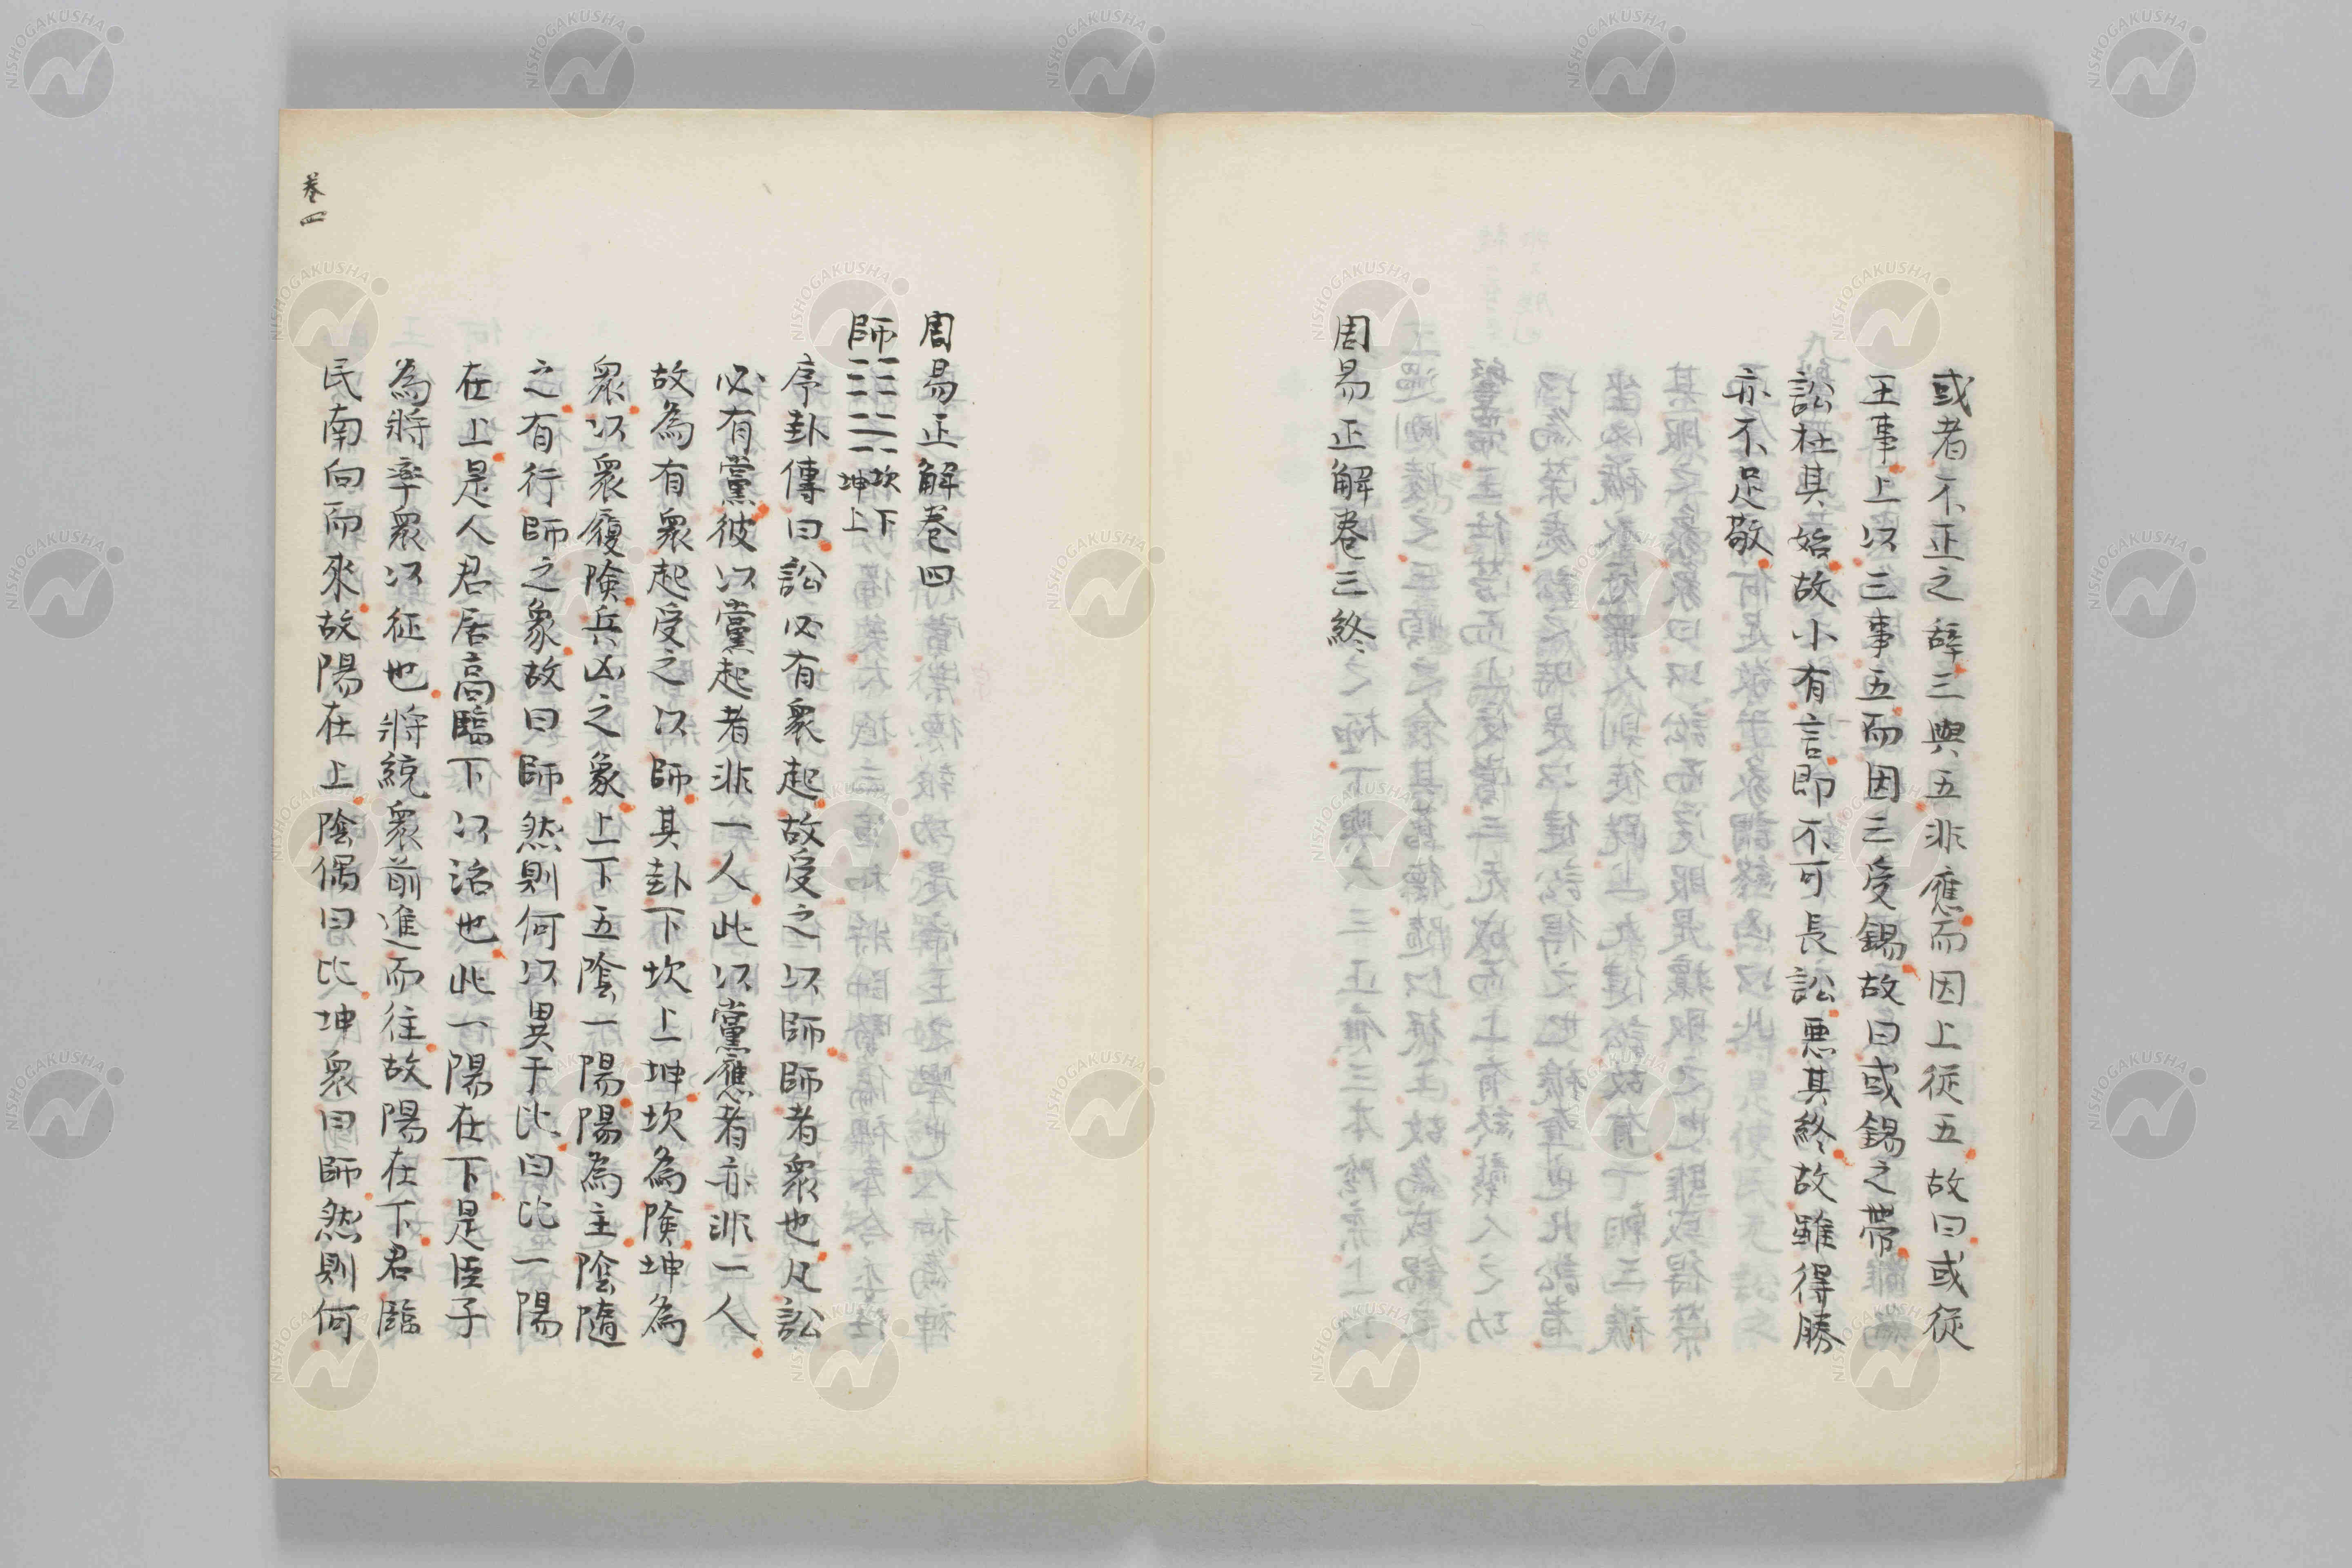 或者不正之辭三與五非應而因上從五故曰或從
王事上以三事五而因三受錫故曰或錫之帶
訟杜其始故小有言即不可長訟惡其終故雖得勝
亦不足敬
周易正解卷三終
周易正解卷四
師 坎下坤上
序卦傳曰訟必有衆起故受之以師師者衆也凡訟
必有黨彼以黨起者非一人此以黨應者亦非一人
故為有衆起受之以師其卦下坎上坤坎為險坤為
衆以衆履險兵凶之象上下五陰一陽陽為主陰隨
之有行師之象故曰師然則何以異于比曰比一陽
在上是人君居高臨下以治也此一陽在下是臣子
為將率衆以征也將統衆前進而往故陽在下君臨
民南向而來故陽在上陰偶曰比坤衆曰師然則何
卷四
NISHOGAKUSHA